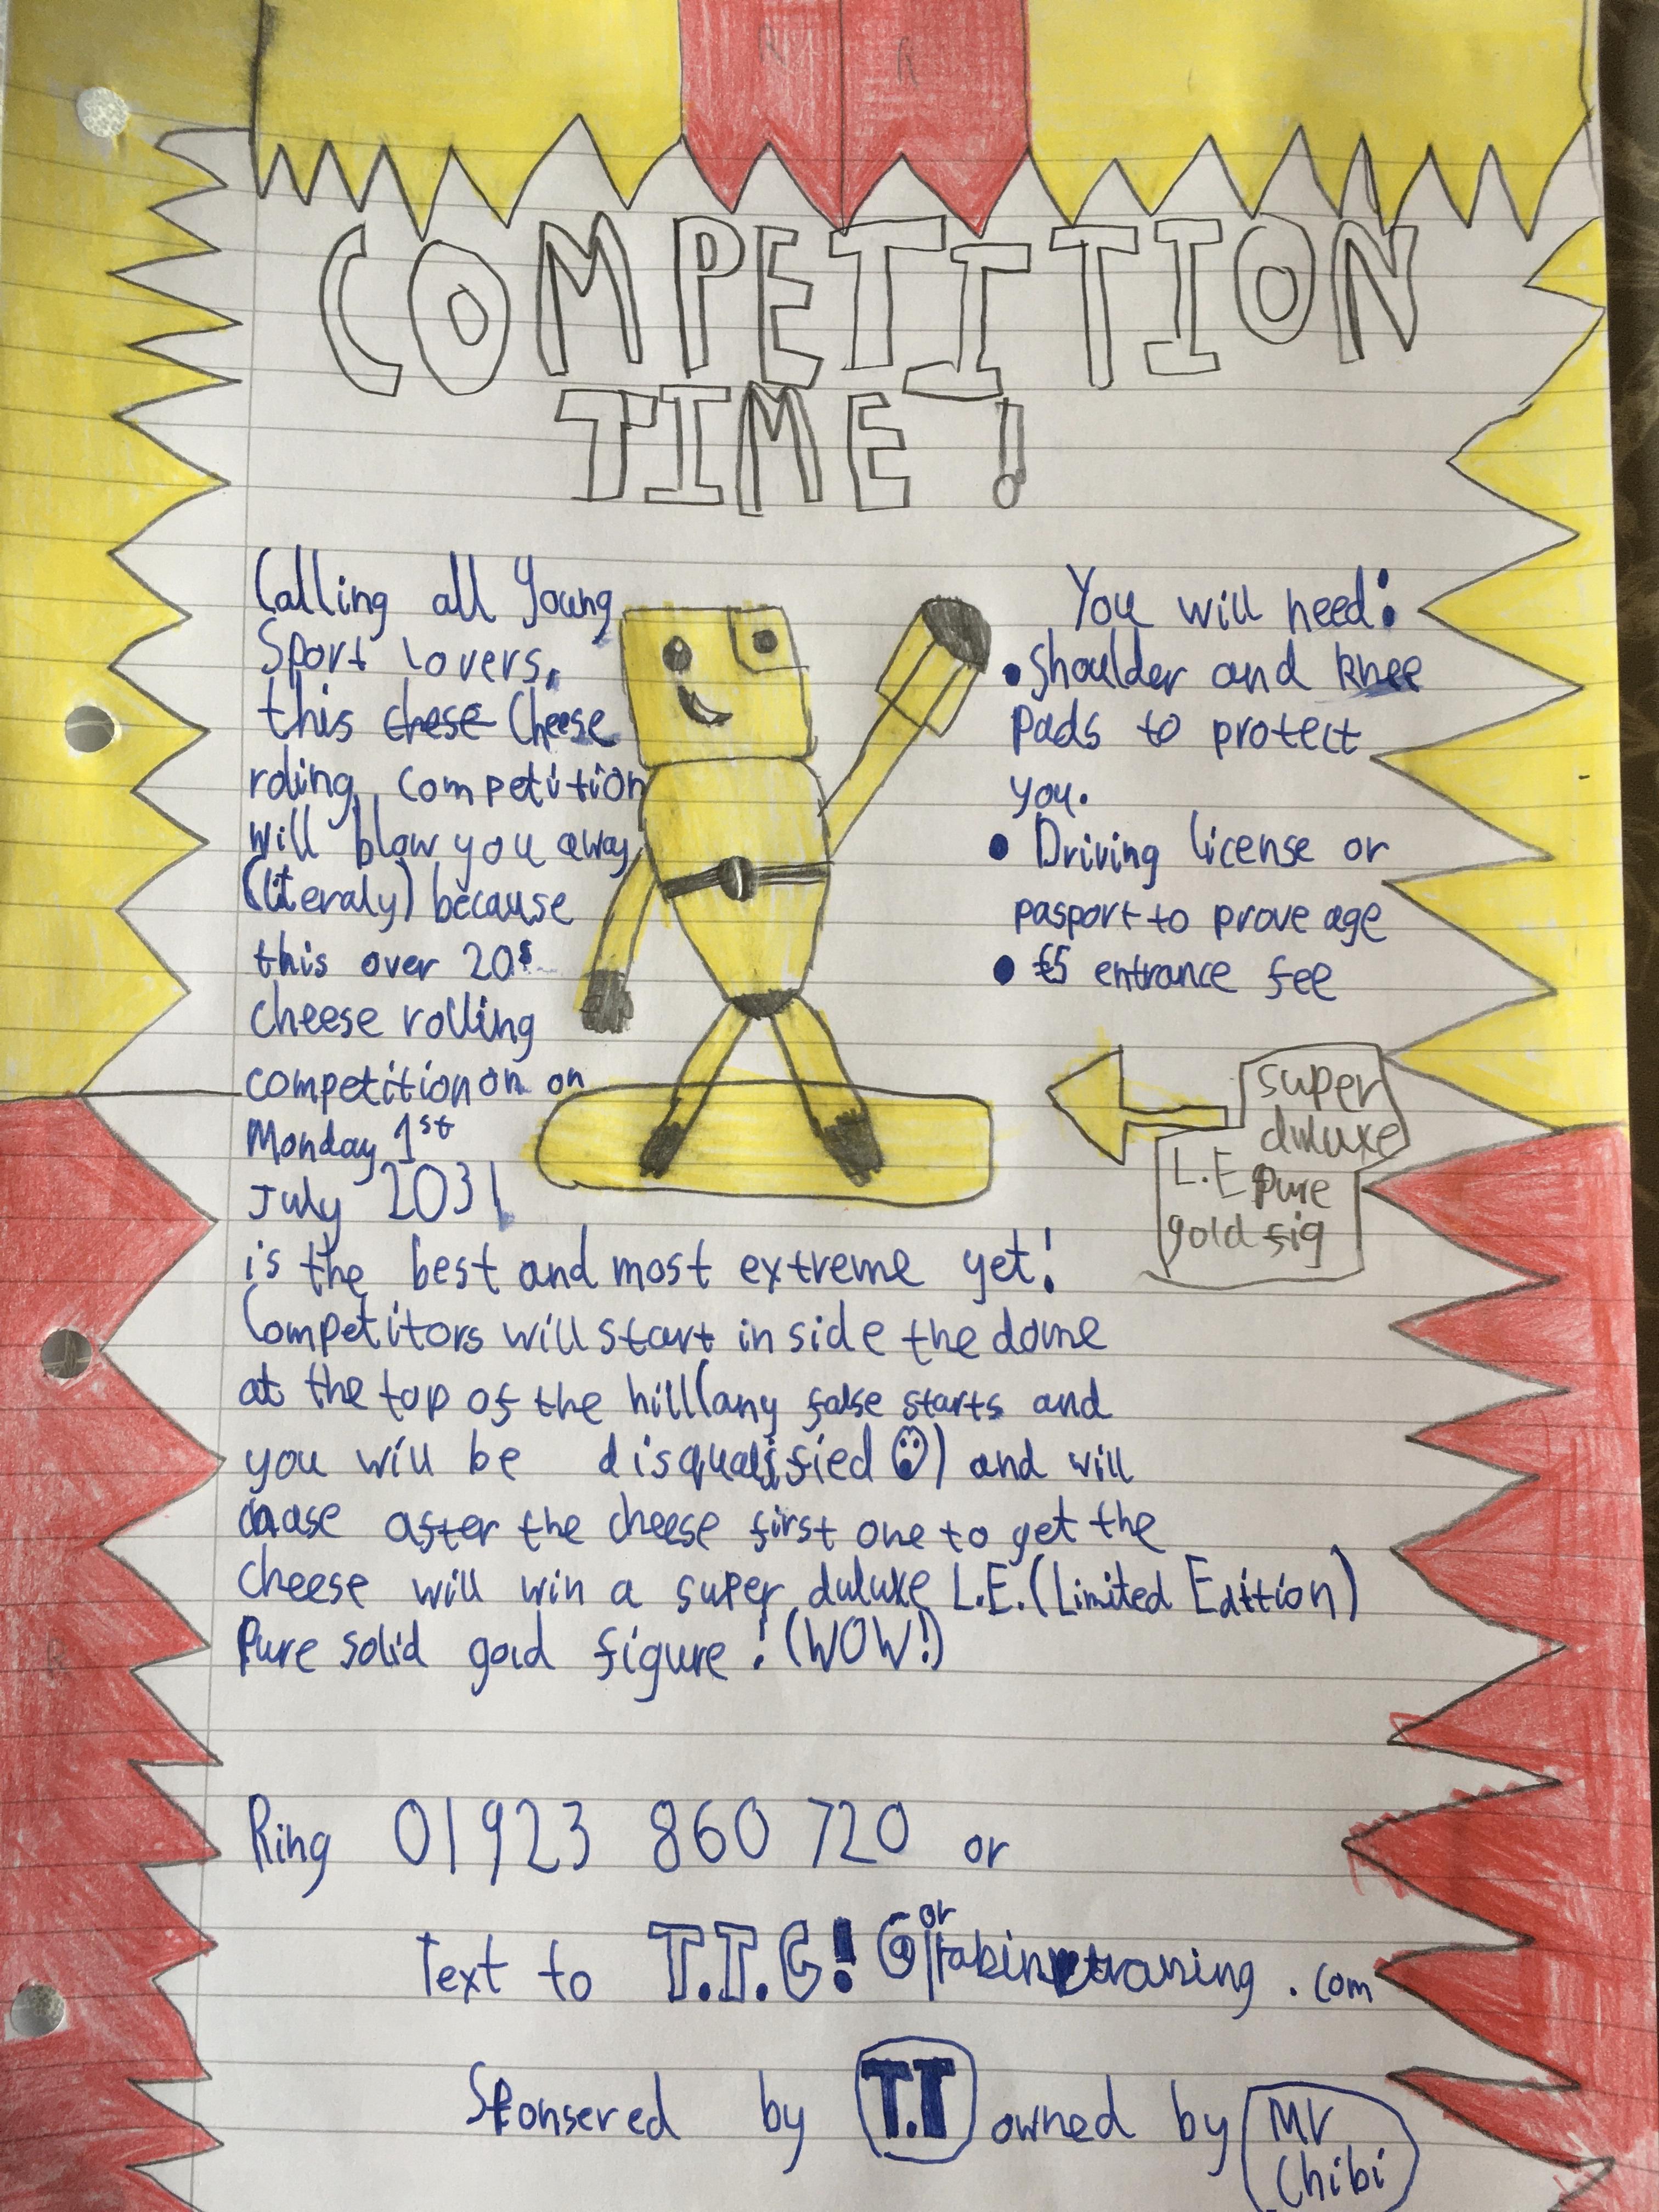 COMPETITION
TIME!
Calling all Young
Sport lovers,
this chese Cheese
roling competition
will blow you away
(literaly) because
this over 20s
cheese rolling
competition on on
Monday 1st
July 2031
is the best and most extreme yet!
Competitors will start in side the dome
at the top of the hill (any false starts and
you will be disqualified) and will
chase after the cheese first one to get the
cheese will win a super duluxe L.E. (Limited Edition)
Pure solid gold figure! (WOW!)
You will need:
• Shoulder and knee
Pads to protect
you.
• Driving license or
pasport to prove age
• £5 entrance fee
super
duluxe
L.E Pure
gold fig
Ring 01923 860 720 or
or
Text to T.T.C! @ .com
Sponsered by T.T owned by Mr
Chibi
R R
R